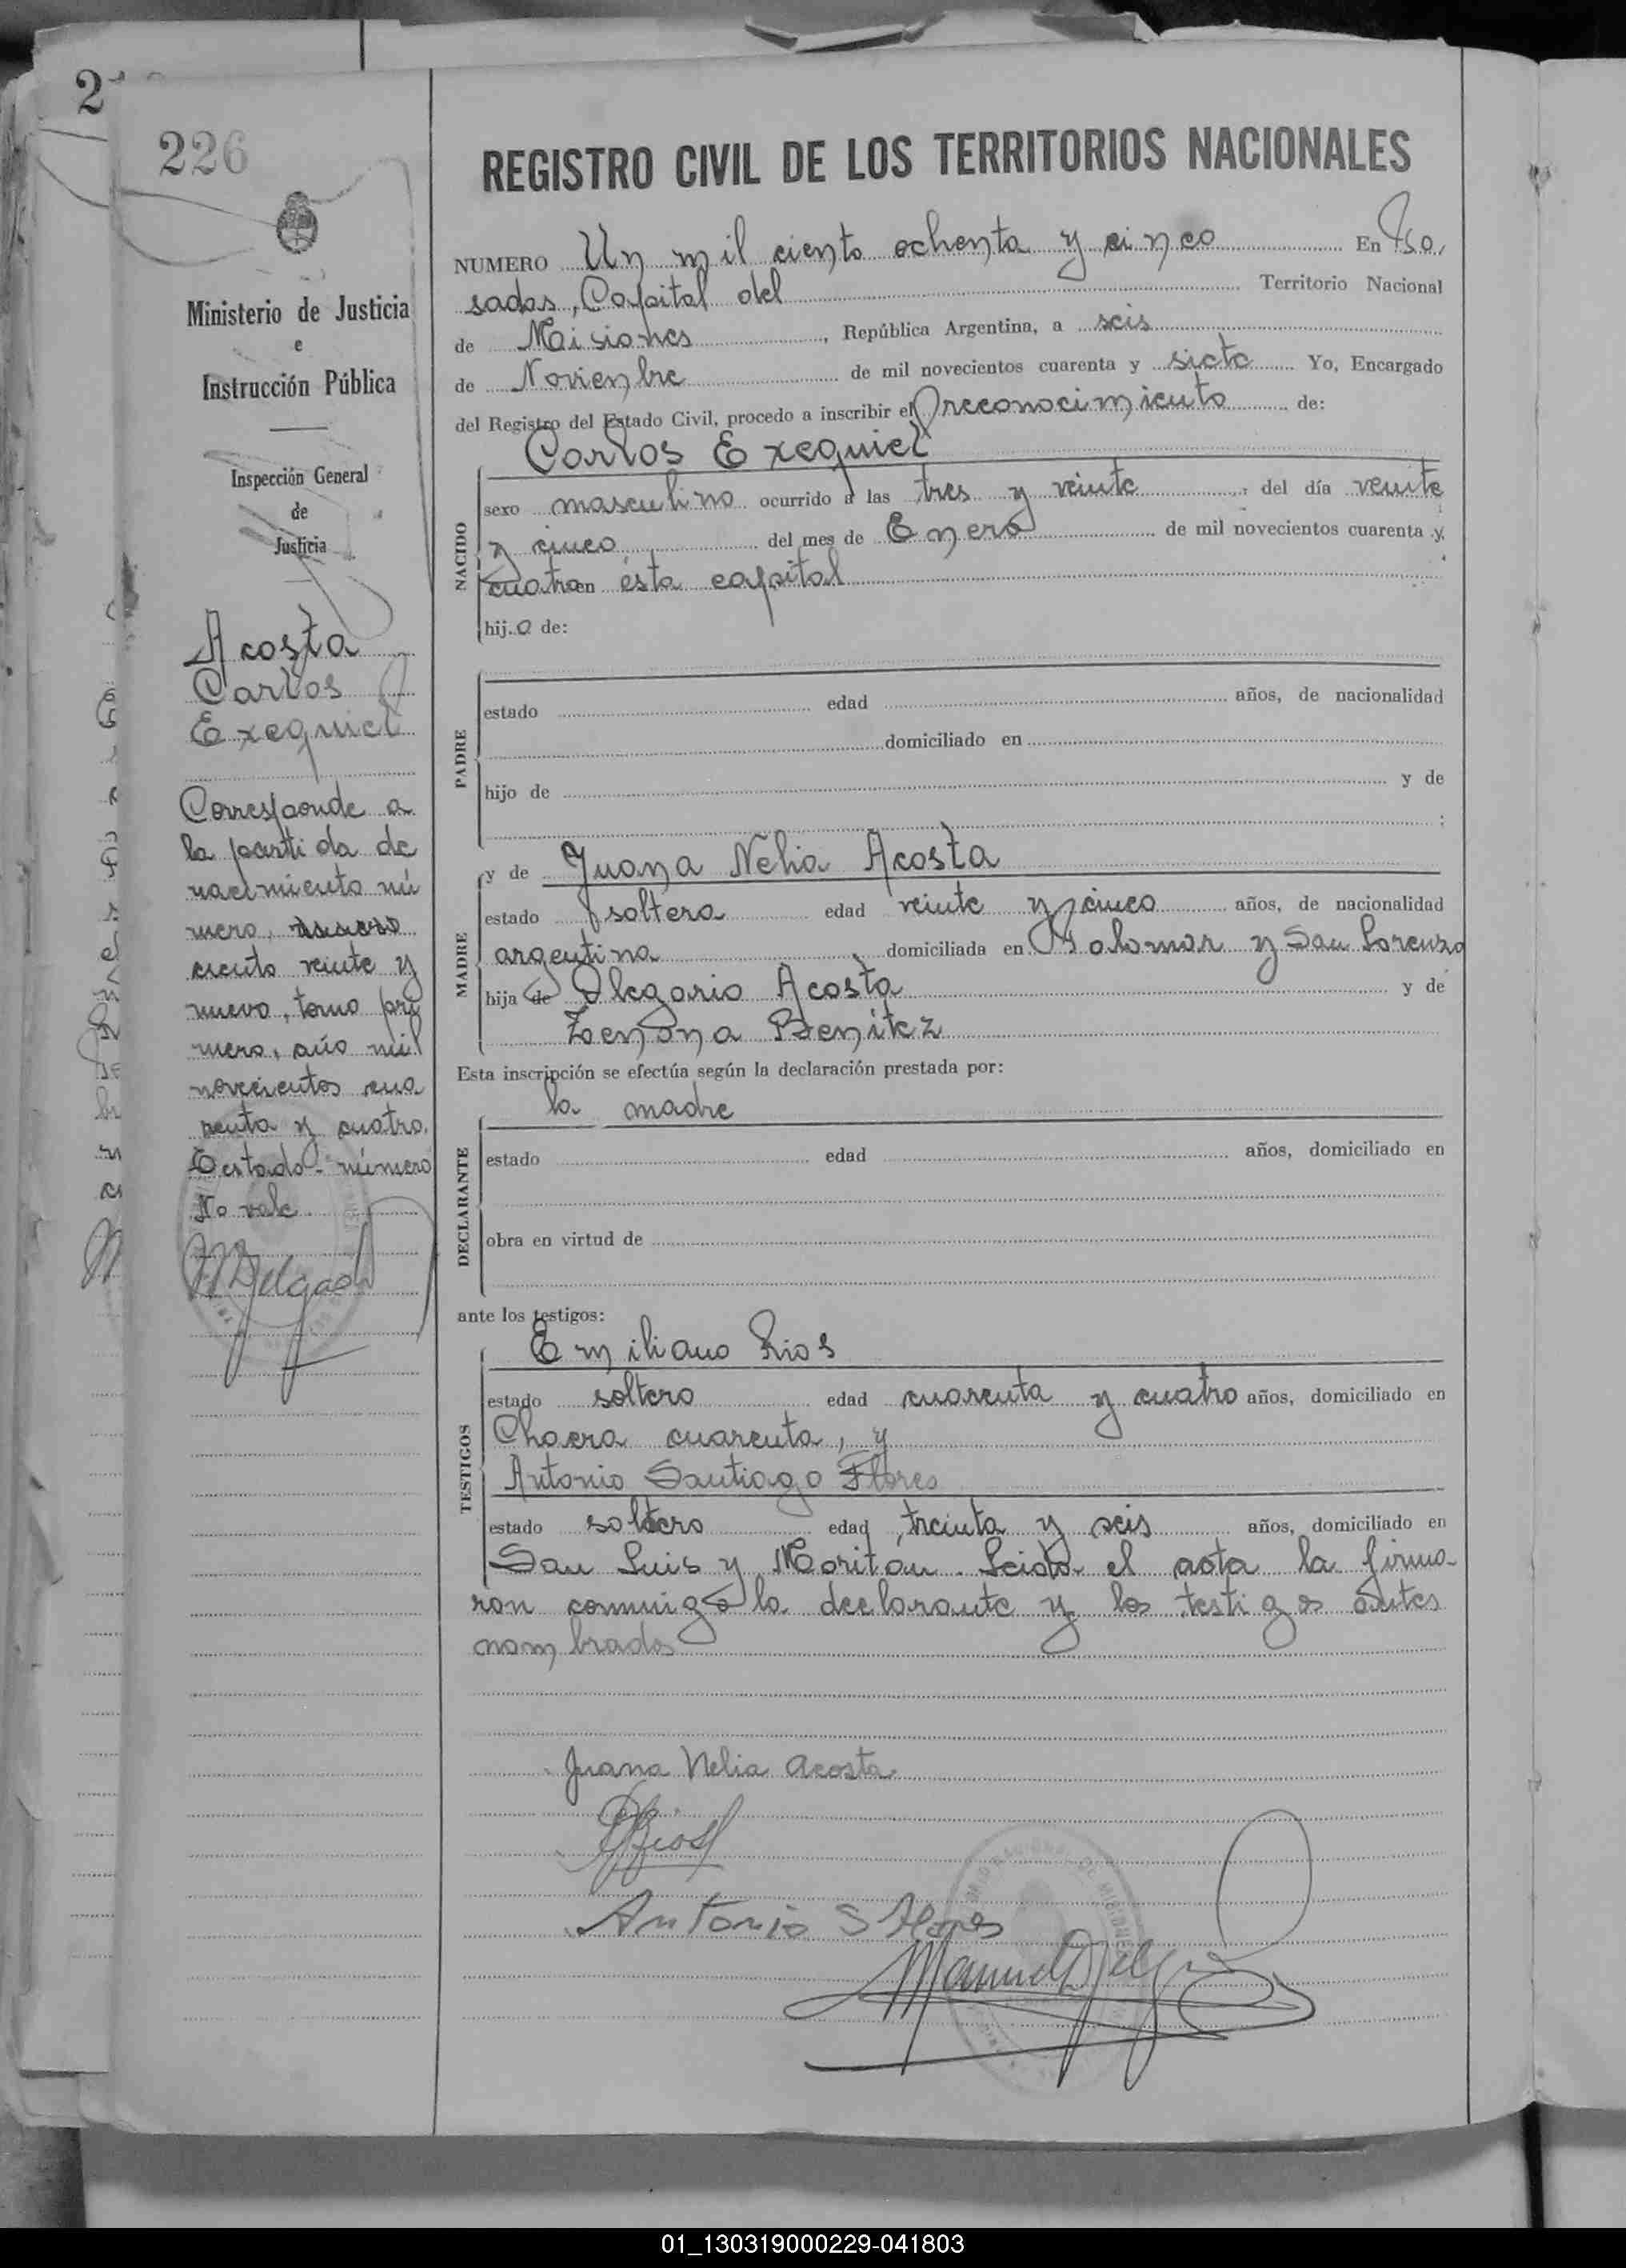 226
REGISTRO CIVIL DE LOS TERRITORIOS NACIONALES
Ministerio de Justicia
e
Instrucción Pública
Inspección General
de
Justicia
Acosta
Carlos
Exequiel
Corresponde a
la partida de
nacimiento nú
mero, número
ciento veinte y
nueve, tomo pri
mero, año mil
novecientos cua
renta y cuatro.
Testado - número
No vale.
MDelgado
NUMERO Un mil ciento ochenta y cinco En Po,
sadas, Capital del Territorio Nacional
de Misiones, República Argentina, a seis
de Noviembre de mil novecientos cuarenta y siete Yo, Encargado
del Registro del Estado Civil, procedo a inscribir el reconocimiento de:
Carlos Exequiel
NACIDO
sexo masculino ocurrido a las tres y veinte, del día veinte
y cinco del mes de Enero de mil novecientos cuarenta y
cuatro en ésta capital
hijo de:
PADRE
estado edad años, de nacionalidad
domiciliado en
hijo de y de
:
MADRE
y de Juana Nelia Acosta
estado soltera edad veinte y cinco años, de nacionalidad
argentina domiciliada en Polomar y San Lorenzo
hija de Olegario Acosta y de
Zenona Benítez
Esta inscripción se efectúa según la declaración prestada por:
la madre
DECLARANTE
estado edad años, domiciliado en
obra en virtud de
ante los testigos:
TESTIGOS
Emiliano Rios
estado soltero edad cuarenta y cuatro años, domiciliado en
Chacra cuarenta, y
Antonio Santiago Flores
estado soltero edad treinta y seis años, domiciliado en
San Luis y Moritán. Leida el acta la firma-
ron conmigo la declarante y los testigos antes
nombrados
Juana Nelia Acosta
Rios
Antonio S Flores
Manuel Delg
01_130319000229-041803